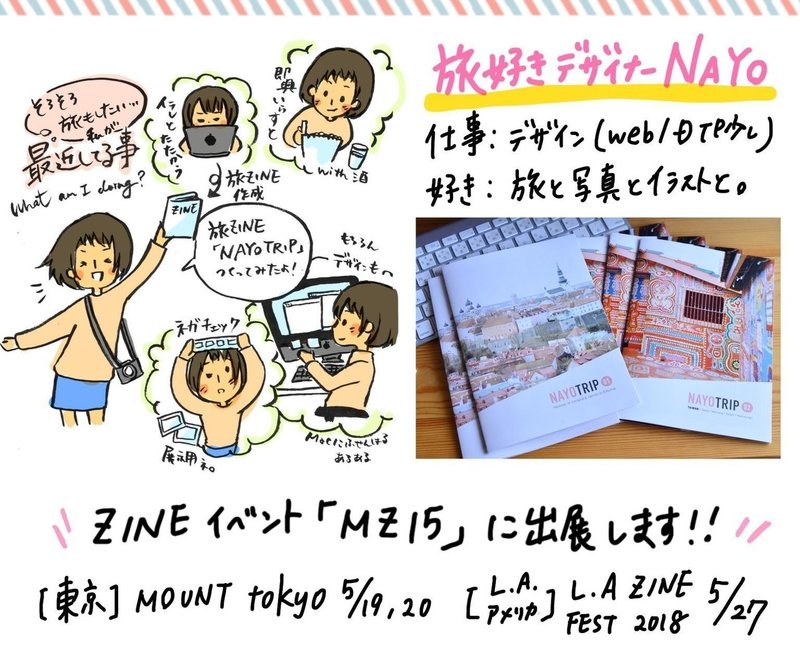 そろそろ
旅もしたい…
私が
最近してる事
What am I doing?
即興
with 酒
旅ZINE
作成
ZINE
旅ZINE
「NAYOTRIP」
つくってみたよ!
もちろん
デザインも〜
ネガチェック
展示用ネ。
Macにふせんはる
あるある
旅好きデザイナーNAYO
仕事: デザイン(web/DTP少し)
好き: 旅と写真とイラストと。
NAYOTRIP 01
NAYOTRIP 02
ZINEイベント「MZ15」に出展します!!
[東京] MOUNT tokyo 5/19,20
[L.A. アメリカ] L.A ZINE FEST 2018 5/27